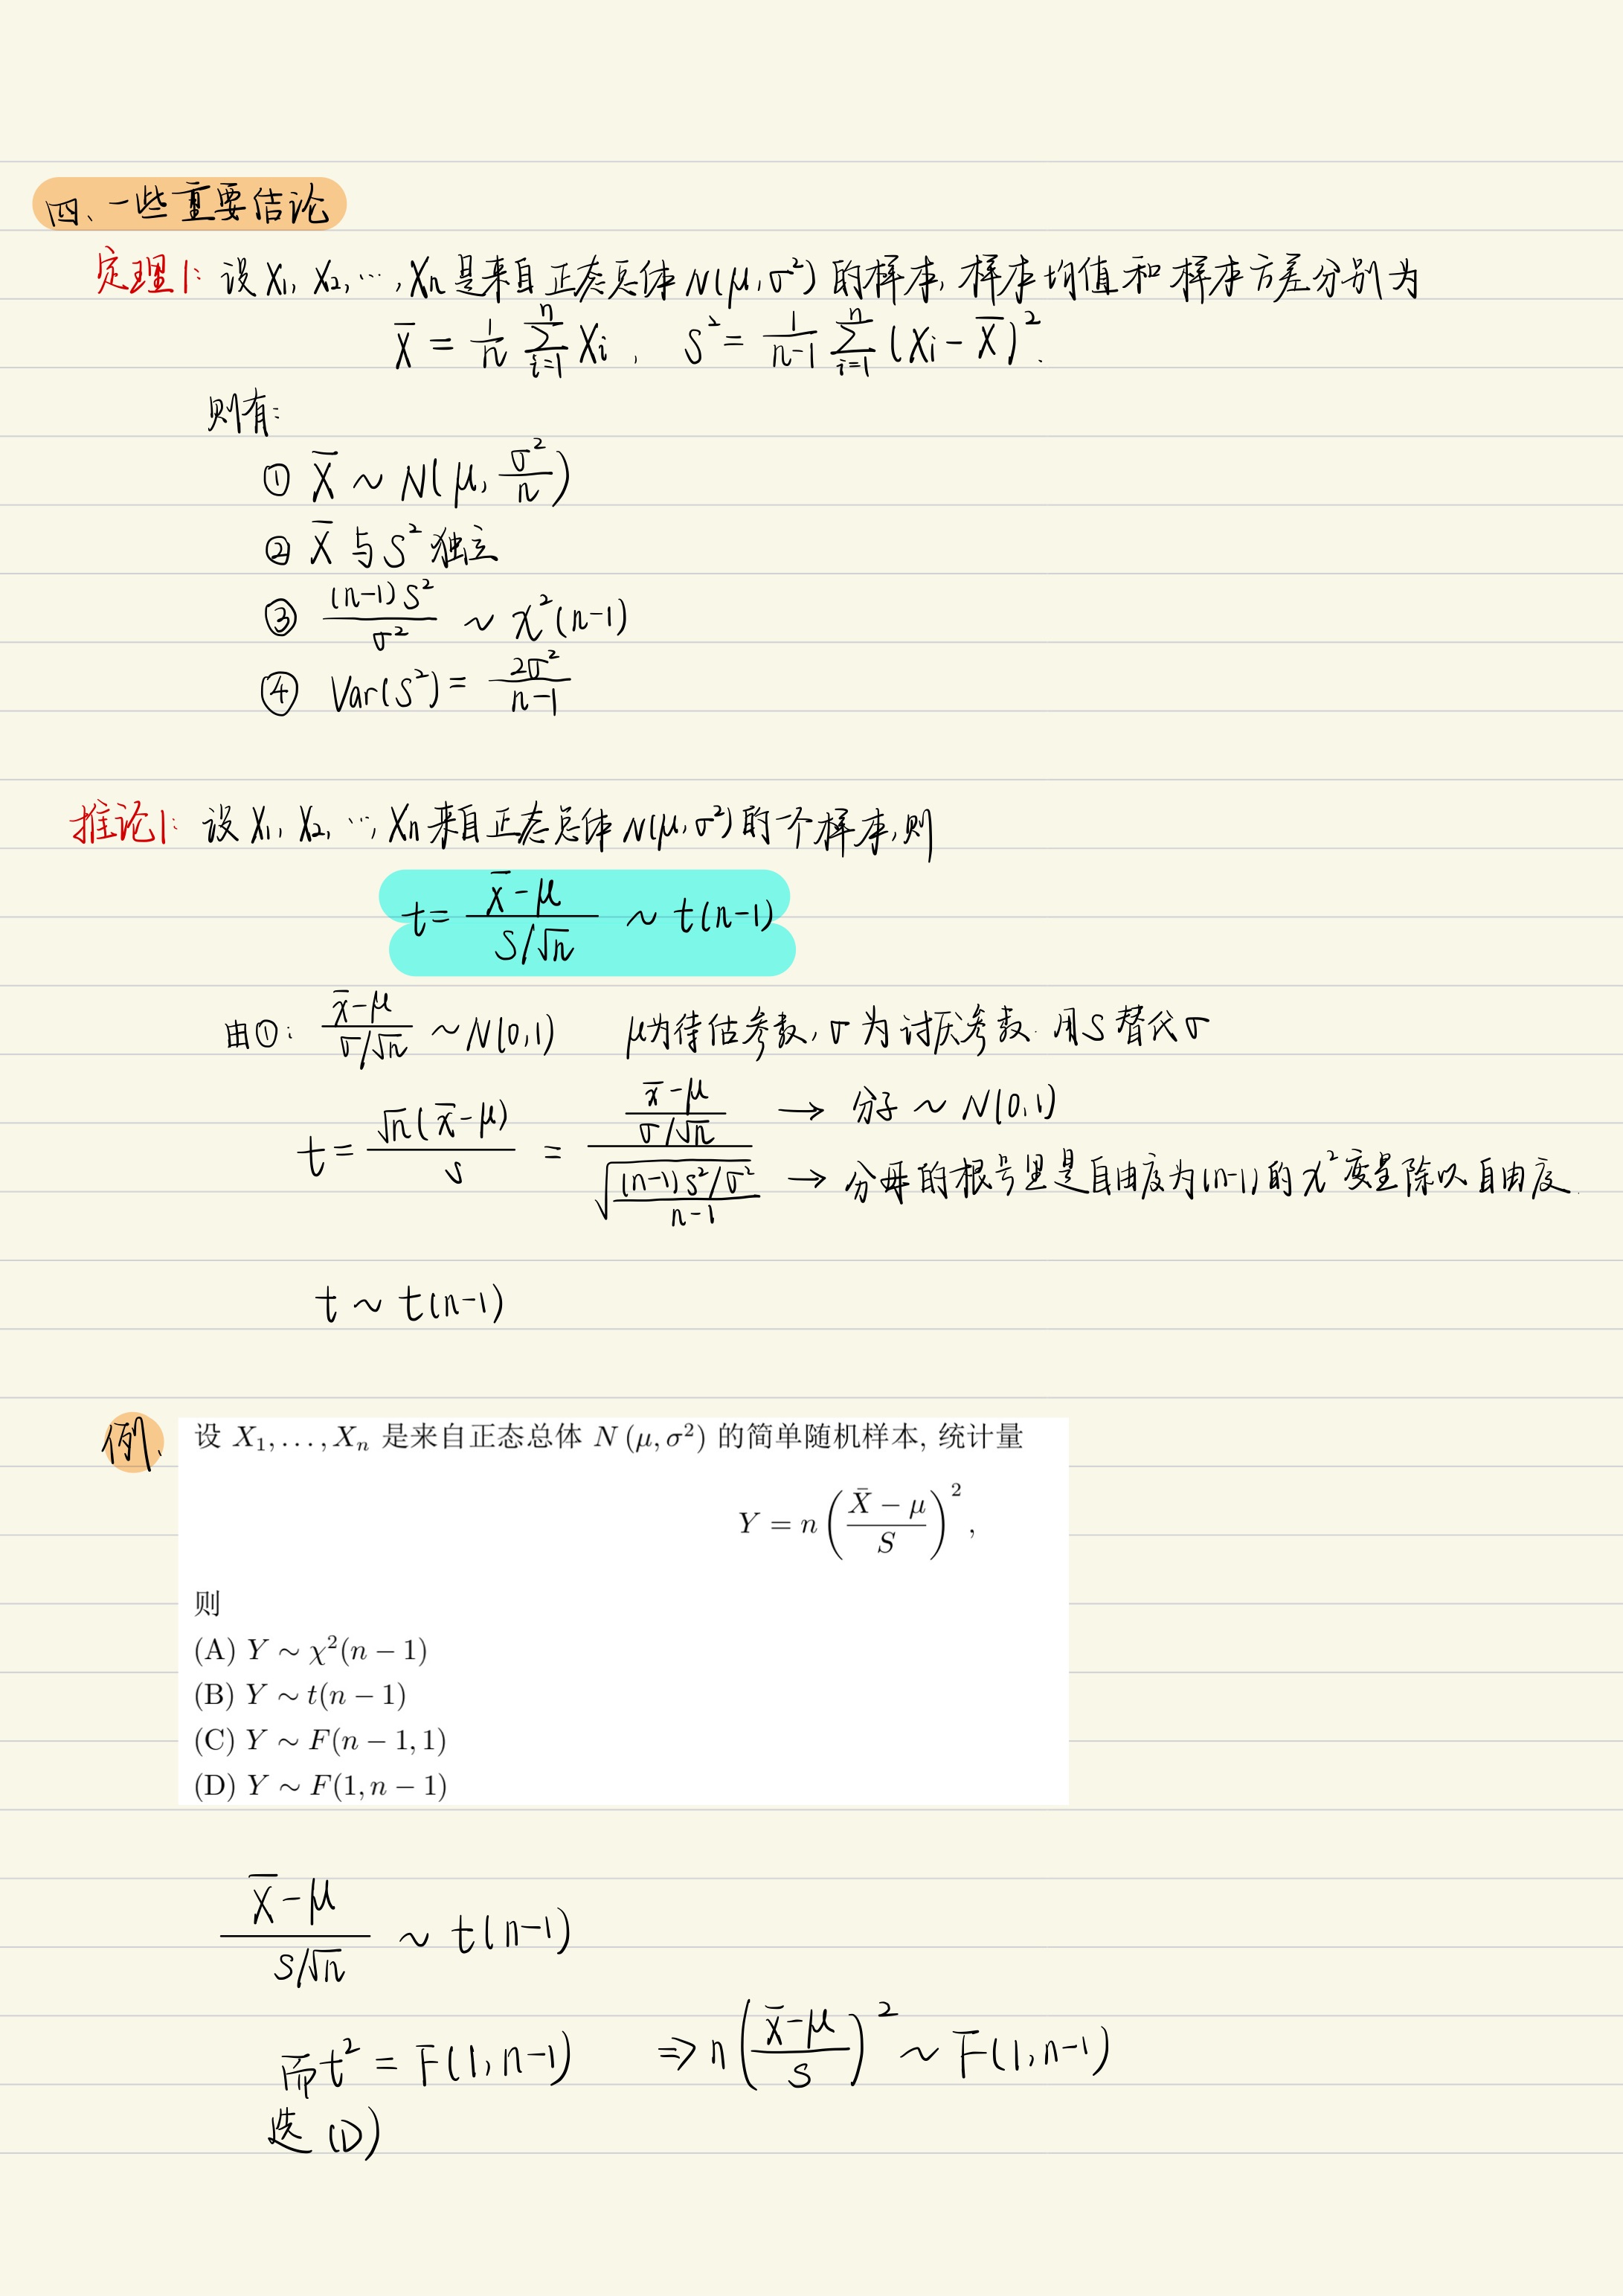 四、一些重要结论
定理1: 设 X₁, X₂, ⋯, Xn 是来自正态总体 N(μ, σ²) 的样本, 样本均值和样本方差分别为
X̄ = 1/n ∑_{i=1}^{n} Xi , S² = 1/(n-1) ∑_{i=1}^{n} (Xi - X̄)².
则有:
① X̄ ~ N(μ, σ²/n)
② X̄ 与 S² 独立
③ (n-1)S²/σ² ~ χ²(n-1)
④ Var(S²) = 2σ²/(n-1)
推论1: 设 X₁, X₂, ⋯, Xn 来自正态总体 N(μ, σ²) 的一个样本, 则
t = (x̄-μ)/(S/√n) ~ t(n-1)
由①: (x̄-μ)/(σ/√n) ~ N(0,1) μ为待估参数, σ为讨厌参数. 用S替代σ
t = √n(x̄-μ)/S = ((x̄-μ)/(σ/√n)) / √(((n-1)S²/σ²)/(n-1)) → 分子 ~ N(0,1)
→ 分母的根号里是自由度为(n-1)的χ²变量除以自由度.
t ~ t(n-1)
例、 设 X₁, . . . , Xₙ 是来自正态总体 N (μ, σ²) 的简单随机样本, 统计量
Y = n ((X̄ − μ)/S)²,
则
(A) Y ∼ χ²(n − 1)
(B) Y ∼ t(n − 1)
(C) Y ∼ F(n − 1, 1)
(D) Y ∼ F(1, n − 1)
(X̄-μ)/(S/√n) ~ t(n-1)
而t² = F(1, n-1) ⇒ n((x̄-μ)/S)² ~ F(1, n-1)
选 (D)